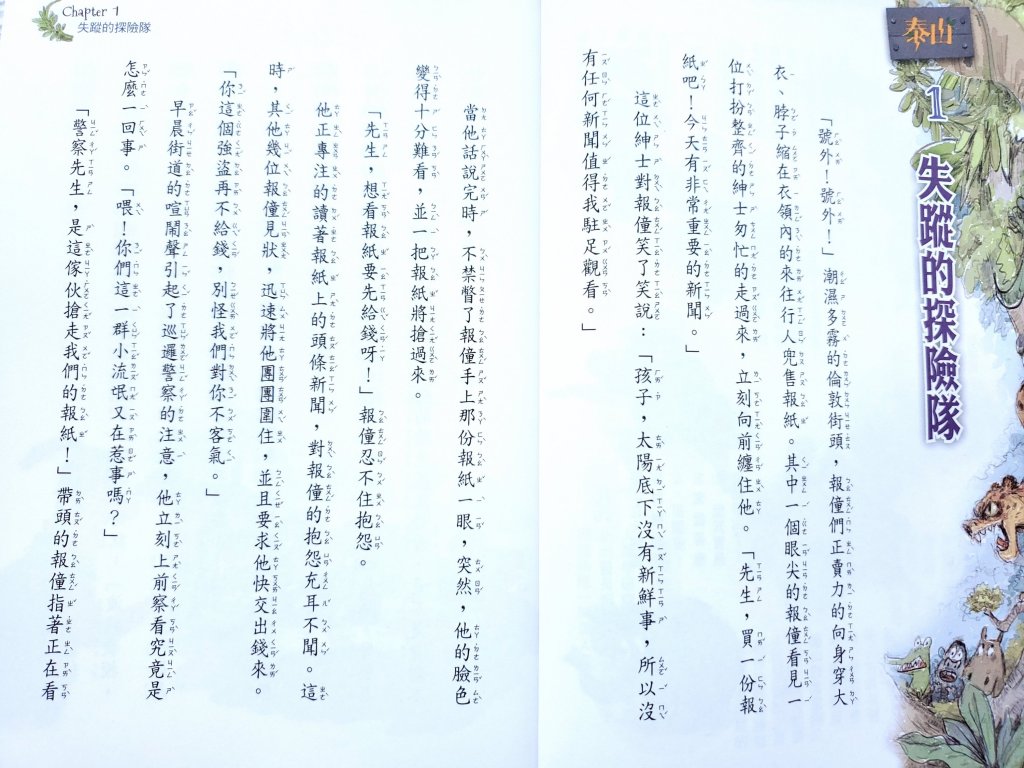 泰山
1
失蹤的探險隊
「號外！號外！」潮濕多霧的倫敦街頭，報僮們正賣力的向身穿大
衣、脖子縮在衣領內的來往行人兜售報紙。其中一個眼尖的報僮看見一
位打扮整齊的紳士匆忙的走過來，立刻向前纏住他。「先生，買一份報
紙吧！今天有非常重要的新聞。」
這位紳士對報僮笑了笑說：「孩子，太陽底下沒有新鮮事，所以沒
有任何新聞值得我駐足觀看。」
Chapter 1
失蹤的探險隊
當他話說完時，不禁瞥了報僮手上那份報紙一眼，突然，他的臉色
變得十分難看，並一把報紙將搶過來。
「先生，想看報紙要先給錢呀！」報僮忍不住抱怨。
他正專注的讀著報紙上的頭條新聞，對報僮的抱怨充耳不聞。這
時，其他幾位報僮見狀，迅速將他團團圍住，並且要求他快交出錢來。
「你這個強盜再不給錢，別怪我們對你不客氣。」
早晨街道的喧鬧聲引起了巡邏警察的注意，他立刻上前察看究竟是
怎麼一回事。「喂！你們這一群小流氓又在惹事嗎？」
「警察先生，是這傢伙搶走我們的報紙！」帶頭的報僮指著正在看